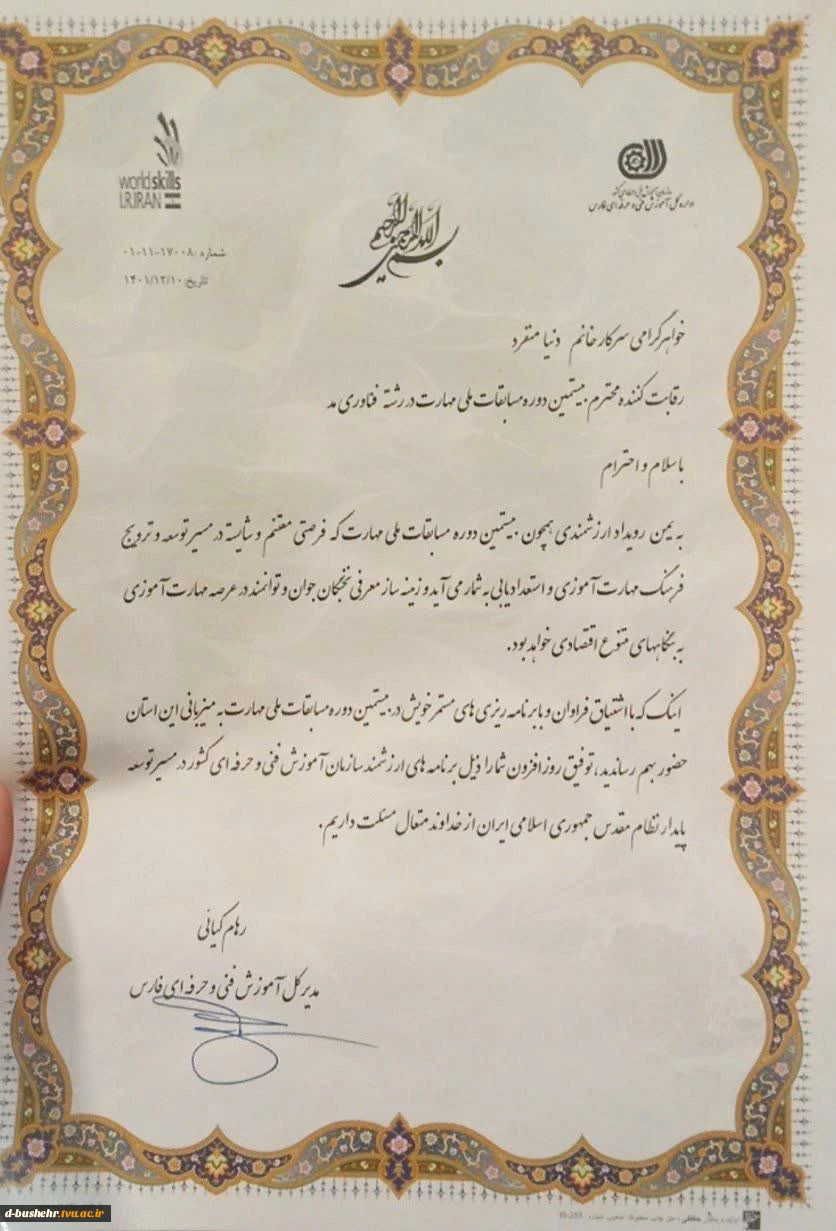 worldskills
I.R.IRAN
سازمان آموزش فنی و حرفه ای کشور
اداره کل آموزش فنی و حرفه ای فارس
بسم الله الرحمن الرحیم
شماره :۰۱-۱۱-۱۷۰۰۸
تاریخ:۱۴۰۱/۱۲/۱۰
خواهر گرامی سرکار خانم دنیا منفرد
رقابت کننده محترم بیستمین دوره مسابقات ملی مهارت در رشته فناوری مد
با سلام و احترام
به یمن رویداد ارزشمندی همچون بیستمین دوره مسابقات ملی مهارت که فرصتی مغتنم و شایسته در مسیر توسعه و ترویج
فرهنگ مهارت آموزی و استعدادیابی به شمار می آید و زمینه ساز معرفی نخبگان جوان و توانمند در عرصه مهارت آموزی
به بنگاههای متنوع اقتصادی خواهد بود.
اینک که با اشتیاق فراوان و با برنامه ریزی های مستمر خویش در بیستمین دوره مسابقات ملی مهارت به میزبانی این استان
حضور بهم رساندید، توفیق روز افزون شما را ذیل برنامه های ارزشمند سازمان آموزش فنی و حرفه ای کشور در مسیر توسعه
پایدار نظام مقدس جمهوری اسلامی ایران از خداوند متعال مسئلت داریم.
رهام کیانی
مدیر کل آموزش فنی و حرفه ای فارس
d-bushehr.tvu.ac.ir